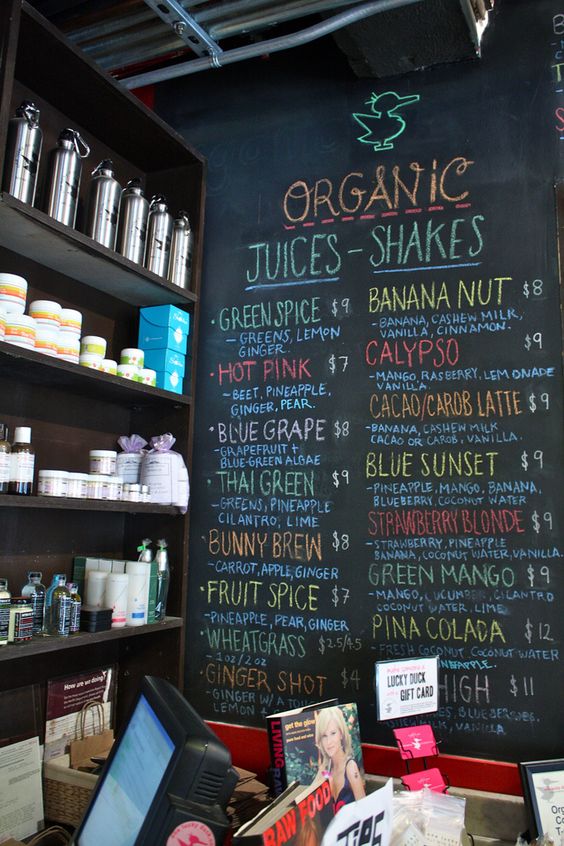 ORGANIC
JUICES - SHAKES
GREEN SPICE $9
- GREENS, LEMON
GINGER.
HOT PINK $7
- BEET, PINEAPPLE,
GINGER, PEAR.
BLUE GRAPE $8
- GRAPEFRUIT +
BLUE-GREEN ALGAE
THAI GREEN $9
- GREENS, PINEAPPLE
CILANTRO, LIME
BUNNY BREW $8
- CARROT, APPLE, GINGER
FRUIT SPICE $7
- PINEAPPLE, PEAR, GINGER
WHEATGRASS $2.5/4.5
- 1 oz / 2 oz
GINGER SHOT $4
- GINGER W/ A TOU
LEMON
BANANA NUT $8
- BANANA, CASHEW MILK,
VANILLA, CINNAMON.
CALYPSO $9
- MANGO, RASBERRY, LEMONADE
VANILLA.
CACAO/CAROB LATTE $9
- BANANA, CASHEW MILK
CACAO OR CAROB, VANILLA.
BLUE SUNSET $9
- PINEAPPLE, MANGO, BANANA,
BLUEBERRY, COCONUT WATER
STRAWBERRY BLONDE $9
- STRAWBERRY, PINEAPPLE
BANANA, COCONUT WATER, VANILLA.
GREEN MANGO $9
- MANGO, CUCUMBER, CILANTRO
COCONUT WATER, LIME
PINA COLADA $12
- FRESH COCONUT COCONUT WATER
PINEAPPLE.
HIGH $11
BLUEBERRIES.
VANILLA
LUCKY DUCK
GIFT CARD
How are we doing?
get the glow
LIVING
RAW FOOD
TIPS